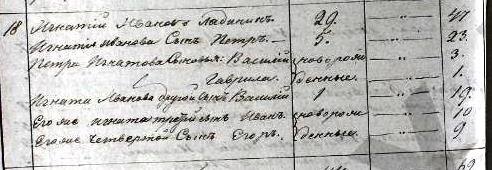 18 Игнатiй Ивановъ Ладыгинъ 29. — „ — 47
Игнатiя Иванова Сынъ Петръ. — 5. — „ — 23.
Петра Игнатова Сыновья: Василiй новорож „ — 3.
Гаврила. денные. — „ — 1.
Игната Иванова другой сынъ Василiй 1 — „ — 19.
Его же Игната третiй сынъ Иванъ новорож — „ — 10
Его же Четвертой Сынъ Егоръ.. денные. — „ — 9
69